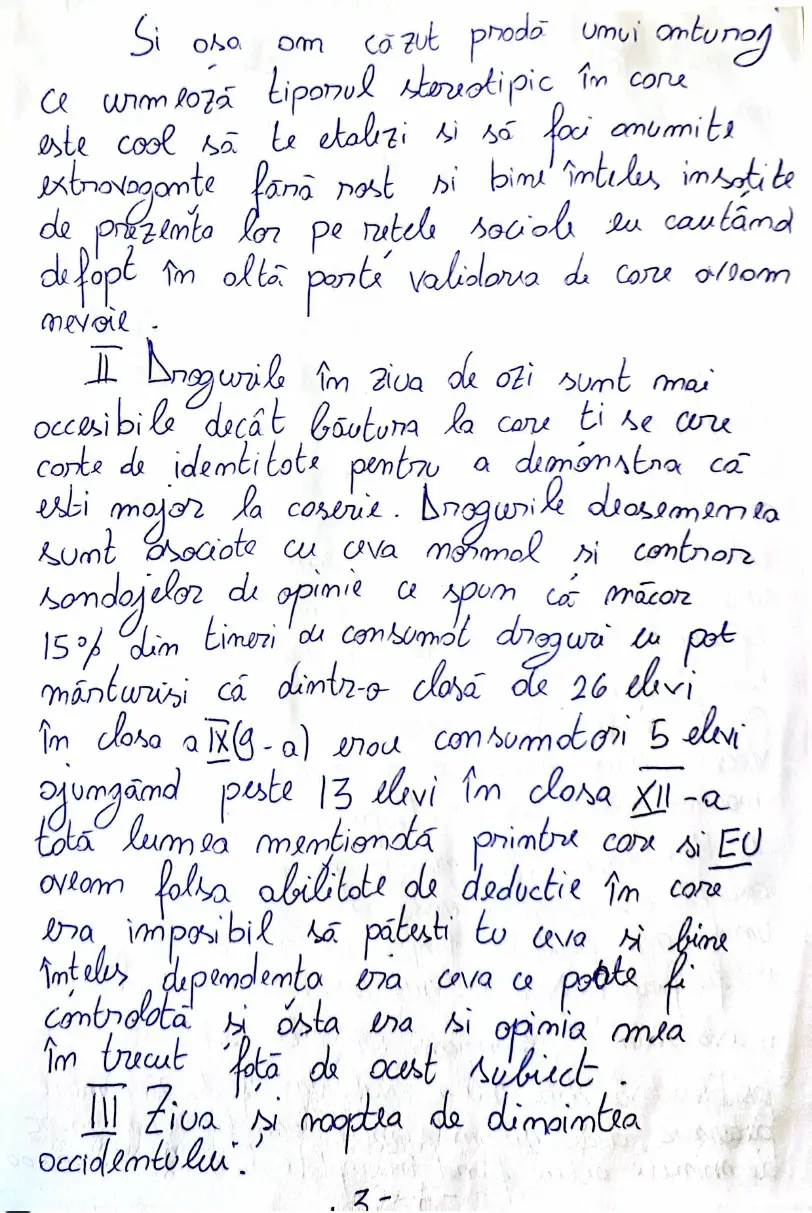 Si asa am căzut pradă unui anturaj
ce urmează tiparul stereotipic în care
este cool să te etalezi si să faci anumite
extravagante fără rost si bine înteles insotite
de prezenta lor pe retele sociale eu cautând
defapt în altă parte validarea de care aveam
nevoie.
II Drogurile în ziua de azi sunt mai
accesibile decât băutura la care ti se cere
carte de identitate pentru a demonstra că
esti major la caserie. Drogurile deasemenea
sunt asociate cu ceva normal si contrar
sondajelor de opinie ce spun că măcar
15% din tineri au consumat droguri eu pot
mărturisi că dintr-o clasă de 26 elevi
în clasa a IX(9-a) erau consumatori 5 elevi
ajungând peste 13 elevi în clasa XII-a
totă lumea menționată printre care si EU
aveam falsa abilitate de deductie în care
era imposibil să pătesti tu ceva si bine
înteles dependenta era ceva ce poate fi
controlată si ăsta era si opinia mea
în trecut fată de acest subiect.
III Ziua și noaptea de dinaintea
accidentului.
3-